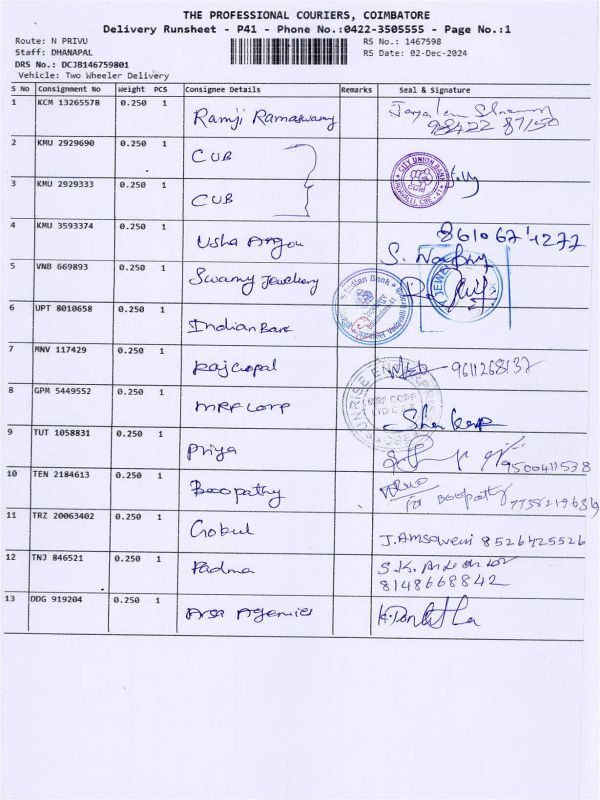 THE PROFESSIONAL COURIERS, COIMBATORE
Delivery Runsheet - P41 - Phone No.:0422-3505555 - Page No.:1
Route: N PRIVU RS No.: 1467598
Staff: DHANAPAL RS Date: 02-Dec-2024
DRS No.: DCJB146759801
Vehicle: Two Wheeler Delivery
S No Consignment No Weight PCS Consignee Details Remarks Seal & Signature
1 KCM 13265578 0.250 1 Ramji Ramaswamy
98422 87150
2 KMU 2929690 0.250 1 CUB
CITY UNION BANK
3 KMU 2929333 0.250 1 CUB
4 KMU 3593374 0.250 1 Usha 8610674277
5 VNB 669893 0.250 1 Swamy Jewellery
Indian Bank
6 UPT 8010658 0.250 1 Indian Bank
7 MNV 117429 0.250 1 Rajgopal 9611268137
8 GPM 5449552 0.250 1 MRF Corp
9 TUT 1058831 0.250 1 Priya 9500411538
10 TEN 2184613 0.250 1 Boopathy for Boopathy 7738219636
11 TRZ 20063402 0.250 1 Gokul J.Amsaveni 8526425526
12 TNJ 846521 0.250 1 Padma S.K.
8148668842
13 DDG 919204 0.250 1 Agencies